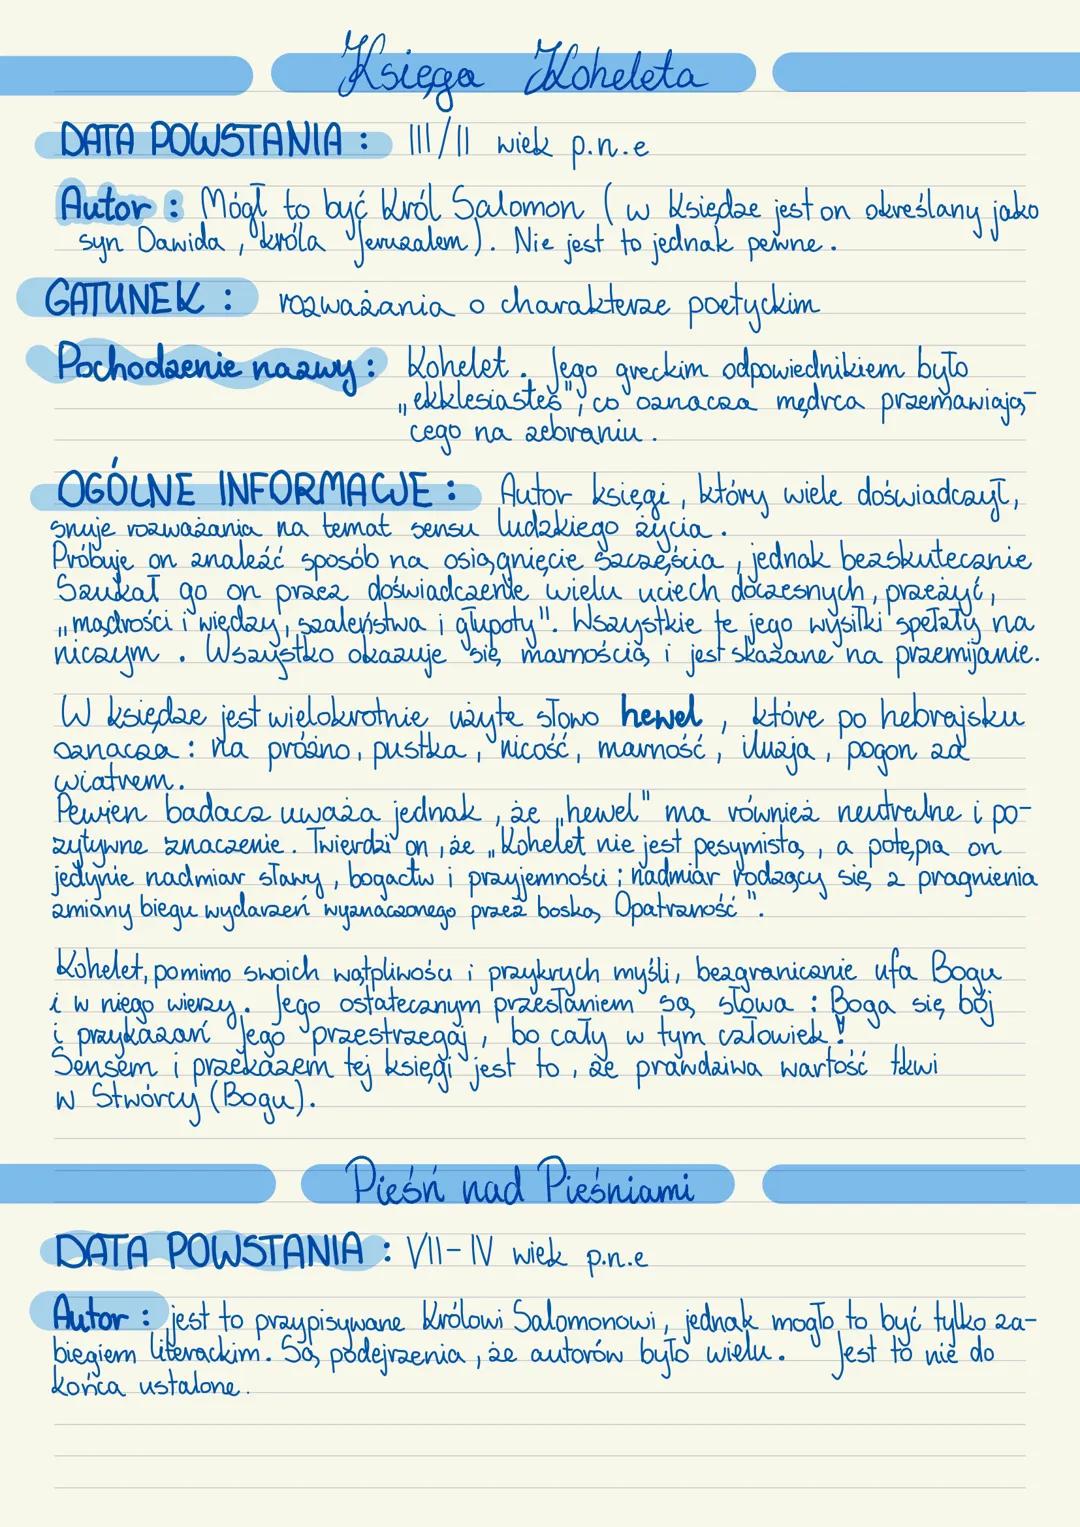 Księga Koheleta
DATA POWSTANIA : III/II wiek p.n.e
Autor : Mógł to być Król Salomon ( w księdze jest on określany jako
syn Dawida, króla Jeruzalem). Nie jest to jednak pewne.
GATUNEK : rozważania o charakterze poetyckim
Pochodzenie nazwy : Kohelet. Jego greckim odpowiednikiem było
„ekklesiastes", co oznacza mędrca przemawiają-
cego na zebraniu.
OGÓLNE INFORMACJE : Autor księgi, który wiele doświadczył,
snuje rozważania na temat sensu ludzkiego życia.
Próbuje on znaleźć sposób na osiągnięcie szczęścia, jednak bezskutecznie
Szukał go on przez doświadczenie wielu uciech doczesnych, przeżyć,
„mądrości i wiedzy, szaleństwa i głupoty". Wszystkie te jego wysiłki spełzły na
niczym. Wszystko okazuje się marnością i jest skazane na przemijanie.
W księdze jest wielokrotnie użyte słowo hewel, które po hebrajsku
oznacza : na próżno, pustka, nicość, marność, iluzja, pogoń za
wiatrem.
Pewien badacz uważa jednak, że „hewel" ma również neutralne i po-
zytywne znaczenie. Twierdzi on, że „Kohelet nie jest pesymistą, a potępia on
jedynie nadmiar sławy, bogactw i przyjemności ; nadmiar rodzący się z pragnienia
zmiany biegu wydarzeń wyznaczonego przez boską Opatrzność".
Kohelet, pomimo swoich wątpliwości i przykrych myśli, bezgranicznie ufa Bogu
i w niego wierzy. Jego ostatecznym przesłaniem są słowa : Boga się bój
i przykazań Jego przestrzegaj, bo cały w tym człowiek!
Sensem i przekazem tej księgi jest to, że prawdziwa wartość tkwi
w Stwórcy (Bogu).
Pieśń nad Pieśniami
DATA POWSTANIA : VII-IV wiek p.n.e
Autor : jest to przypisywane Królowi Salomonowi, jednak mogło to być tylko za-
biegiem literackim. Są podejrzenia, że autorów było wielu. Jest to nie do
końca ustalone.